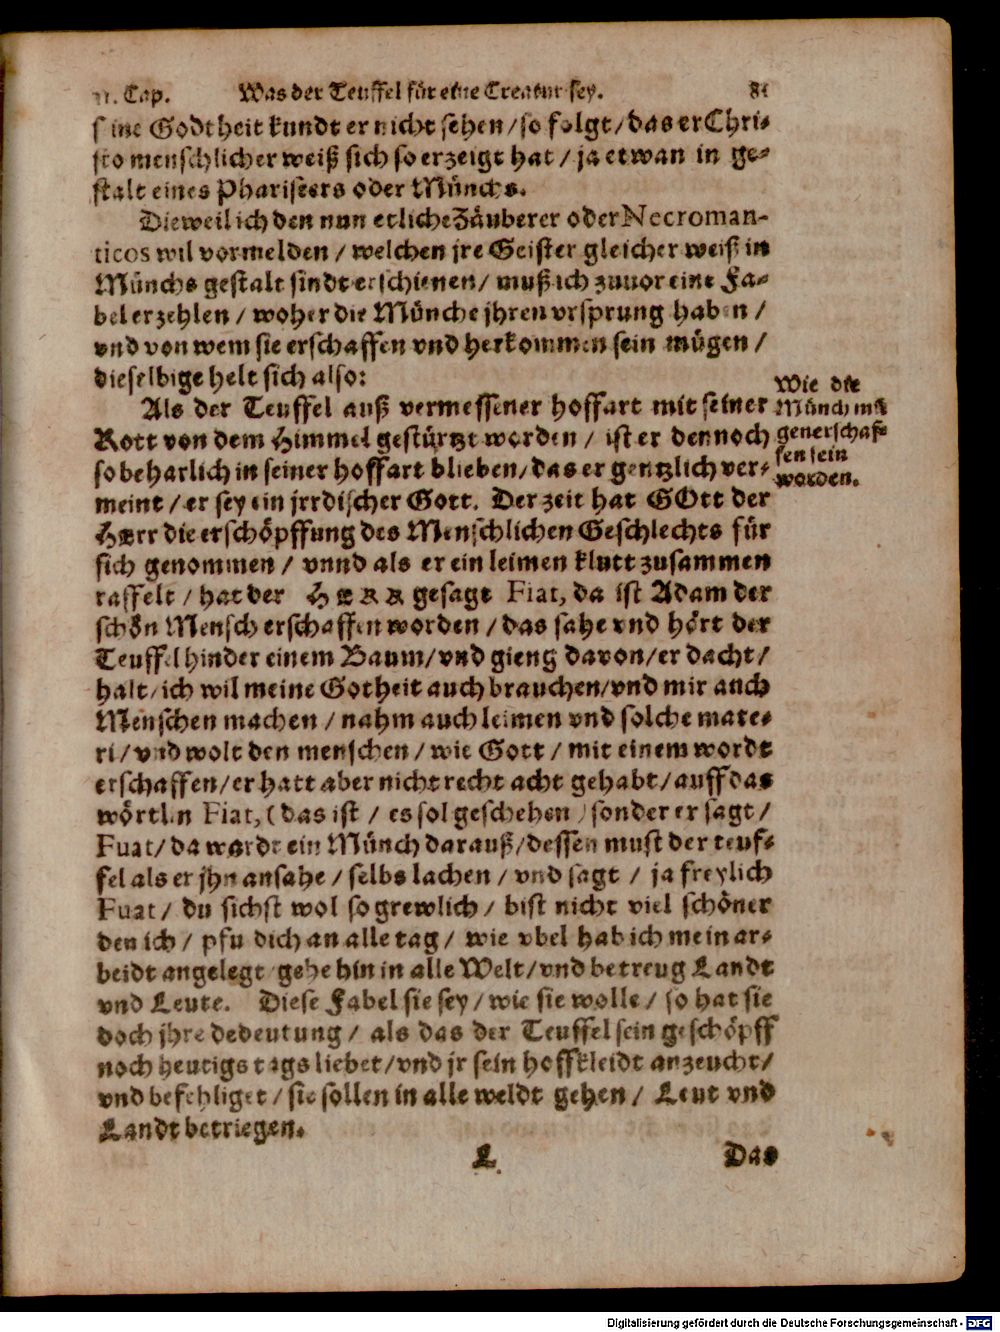 II. Cap. Was der Teuffel für eine Creatur sey. 81
seine Godtheit kundt er nicht sehen / so folgt / das er Chri-
sto menschlicher weiß sich so erzeigt hat / ja etwan in ge-
stalt eines Phariseers oder Münchs.
Dieweil ich den nun etliche Zäuberer oder Necroman-
ticos wil vormelden / welchen jre Geister gleicher weiß in
Münchs gestalt sindt erschienen / muß ich zuuor eine Fa-
bel erzehlen / woher die Münche jhren vrsprung haben /
vnd von wem sie erschaffen vnd herkommen sein mügen /
dieselbige helt sich also:
Als der Teuffel auß vermessener hoffart mit seiner
Rott von dem Himmel gestürtzt worden / ist er dennoch
so beharlich in seiner hoffart blieben / das er gentzlich ver-
meint / er sey ein jrrdischer Gott. Der zeit hat GOtt der
HErr die erschöpffung des Menschlichen Geschlechts für
sich genommen / vnnd als er ein leimen klutt zusammen
raffelt / hat der HERR gesagt Fiat, da ist Adam der
schön Mensch erschaffen worden / das sahe vnd hört der
Teuffel hinder einem Baum / vnd gieng davon / er dacht /
halt / ich wil meine Gotheit auch brauchen / vnd mir auch
Menschen machen / nahm auch leimen vnd solche mate-
ri / vnd wolt den menschen / wie Gott / mit einem wordt
erschaffen / er hatt aber nicht recht acht gehabt / auff das
wörtlin Fiat, (das ist / es sol geschehen) sonder er sagt /
Fuat / da wardt ein Münch darauß / dessen must der teuf-
fel als er jhn ansahe / selbs lachen / vnd sagt / ja freylich
Fuat / du sichst wol so grewlich / bist nicht viel schöner
den ich / pfu dich an alle tag / wie vbel hab ich mein ar-
beidt angelegt / gehe hin in alle Welt / vnd betreug Landt
vnd Leute. Diese Fabel sie sey / wie sie wolle / so hat sie
doch jhre bedeutung / als das der Teuffel sein geschöpff
noch heutigs tags liebet / vnd jr sein hoffkleidt anzeucht /
vnd befehliget / sie sollen in alle weldt gehen / Leut vnd
Landt betriegen.
Wie die
Münch mü
gen erschaf-
fen sein
worden.
L
Das
Digitalisierung gefördert durch die Deutsche Forschungsgemeinschaft - DFG